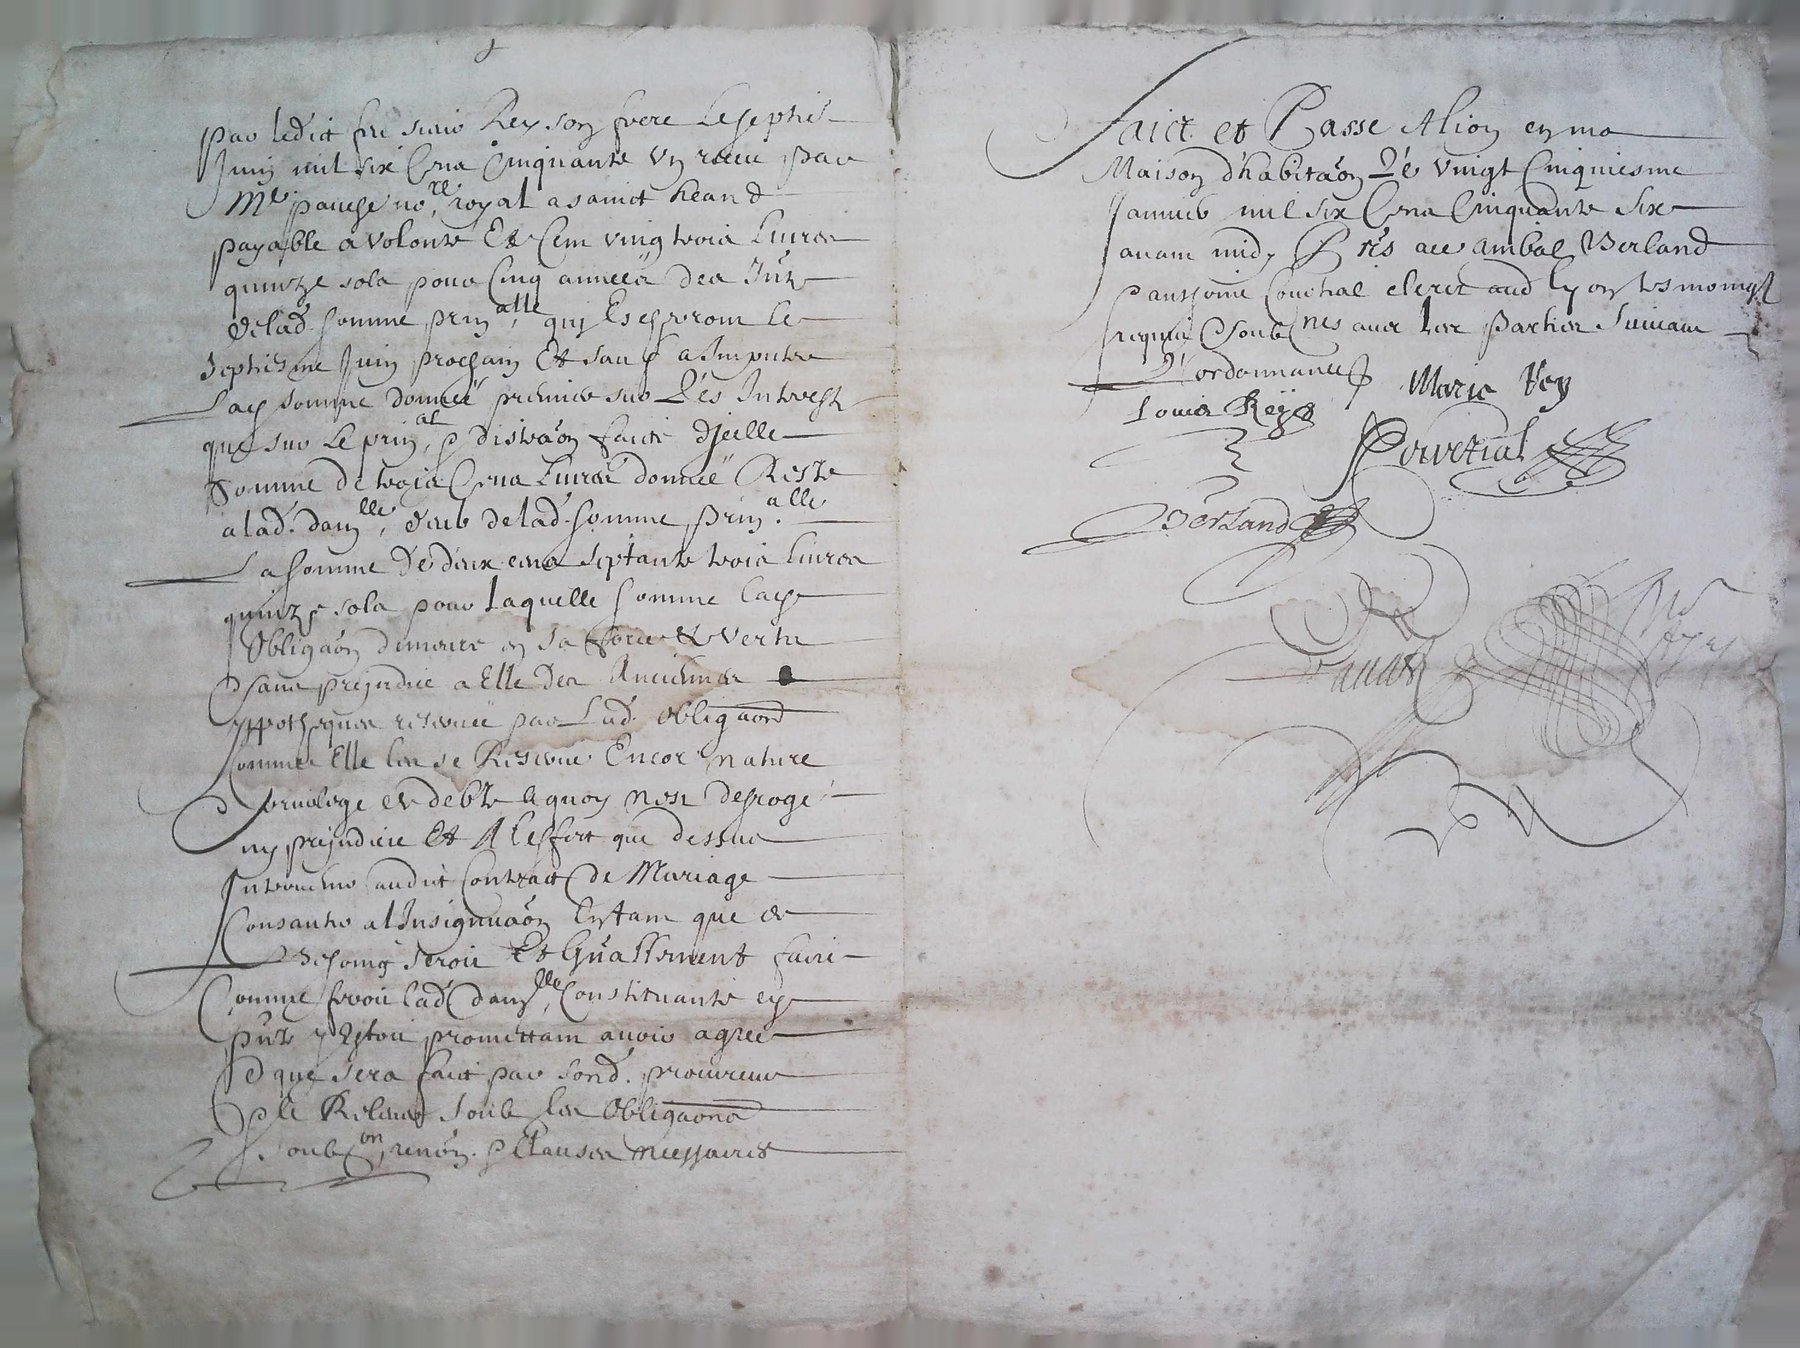 par ledict feu sieur Rey son frere le septie
Juin mil six cens cinquante un receu par
Me no.re royal a sainct heand
payable a volonte Et Cent vingt trois livres
quinze sols pour cinq années des Intz
de lad. somme prin.alle qui Escherront le
septiesme Juin prochain Et sauf a Imputer
Lad somme donnée premier sur Lés Interestz
que sur le prin.al, distraôn faicte d'jcelle
Somme de trois Cens livres donnée Reste
a lad. dam.lle, deub de lad. somme prin.alle
La somme Dé deux cens septante trois livres
quinze sols pour laquelle somme lad
Obligaôn demeure en sa force & vertu
sans prejudice a Elle Des Anciennes
yppotheques reservées par Lad. obligaond
comme Elle les se Réserve Encor nature
privilege et debte a quoy n'est desroge
ny prejudicie Et A l'effect que dessus
Intervenir audict Contract de Mariage
Consantir a l'Insignuaôn En tant que de
Besoing seroit Et Gñallement faire
Comme feroit lad dam.lle, Constituante
pñte y Estoit promettant avoir agree
ce que sera faict par sond. procureur
le Relever soub les obligaons
soub.on, renôn. & Clauses necessaires
Faict et Passé A lion en ma
Maison d'habitaôn Lé vingt Cinquiesme
Janvier mil six Cens Cinquante Six
avant midy Prés Berland
clerc aud Lyon tesmoingz
requis Soub.nes avec les Parties Suivant
L'ordonnance Marie Rey
Louis Rey
Berland